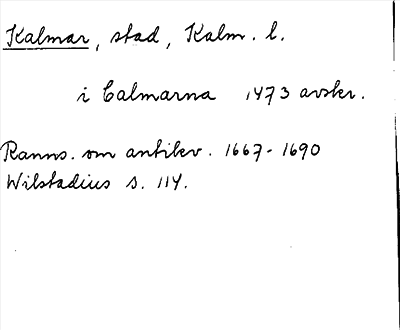 Kalmar, stad, Kalm. l.
i Calmarna 1473 avskr.
Ranns. om antikv. 1667-1690
Wilstadius s. 114.